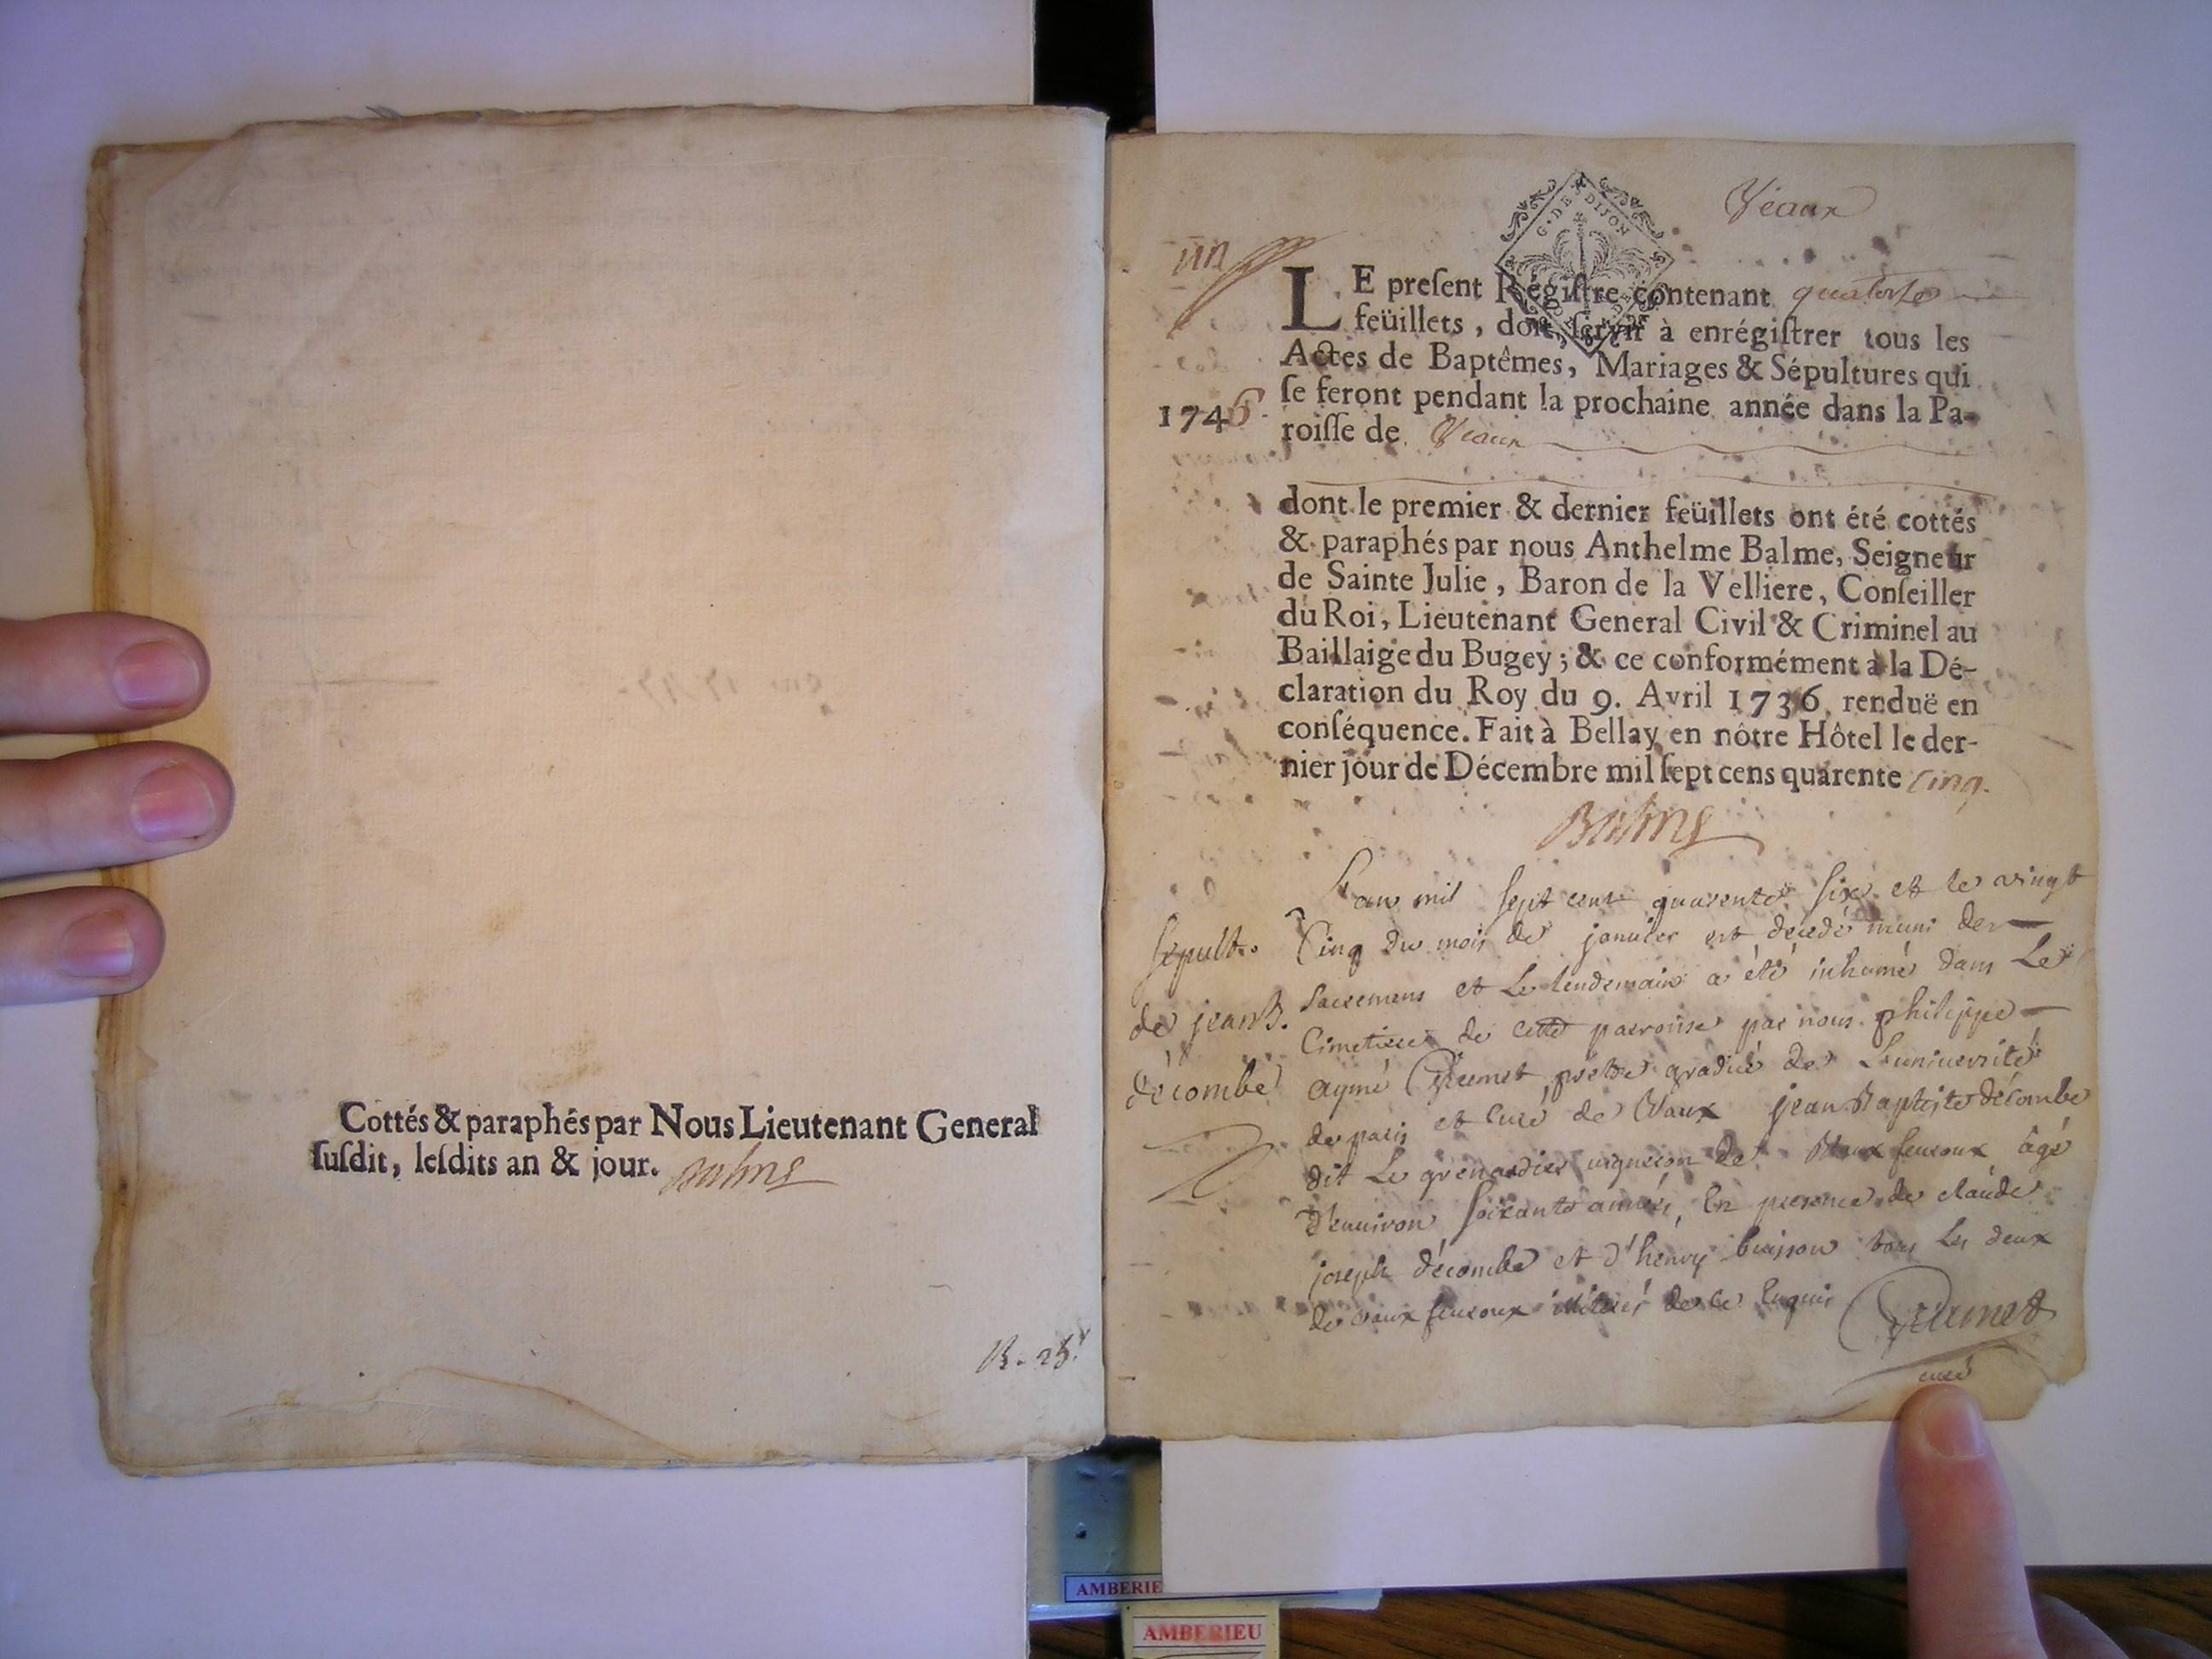 Cottés & paraphés par Nous Lieutenant General
ſuſdit, leſdits an & jour. Balme
B. 25.
Veaux
un
G. DE DIJON
LE preſent Régiſtre contenant quatorze
feüillets, doit ſervir à enrégiſtrer tous les
Actes de Baptêmes, Mariages & Sépultures qui
ſe feront pendant la prochaine année dans la Pa-
1746.
roiſſe de Veaux
dont le premier & dernier feüillets ont été cottés
& paraphés par nous Anthelme Balme, Seigneur
de Sainte Julie, Baron de la Velliere, Conſeiller
du Roi, Lieutenant General Civil & Criminel au
Baillaige du Bugey; & ce conformément à la Dé-
claration du Roy du 9. Avril 1736. renduë en
conſéquence. Fait à Bellay en nôtre Hôtel le der-
nier jour de Décembre mil ſept cens quarente cinq.
Balme
Sepult.
de jean B.
décombe
L'an mil sept cent quarente six et le vingt
Cinq du mois de januier est décédé muni des
Sacremens et Le lendemain a été inhumé dans Le
Cimetiere de cette parroisse par nous philippe
aymé prêtre gradué de L'uniuersité
de paris et Curé de Vaux jean Baptiste décombe
dit Le grenadier uigneron de Vaux feuroux âgé
D'enuiron soixante années, En presence de claude
joseph décombe et d'henry buisson tous Les deux
de vaux feuroux illiterés de ce Enquis
curé
AMBERIE
AMBERIEU